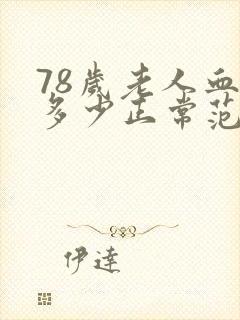 78歲老人血
多少正常范
伊達